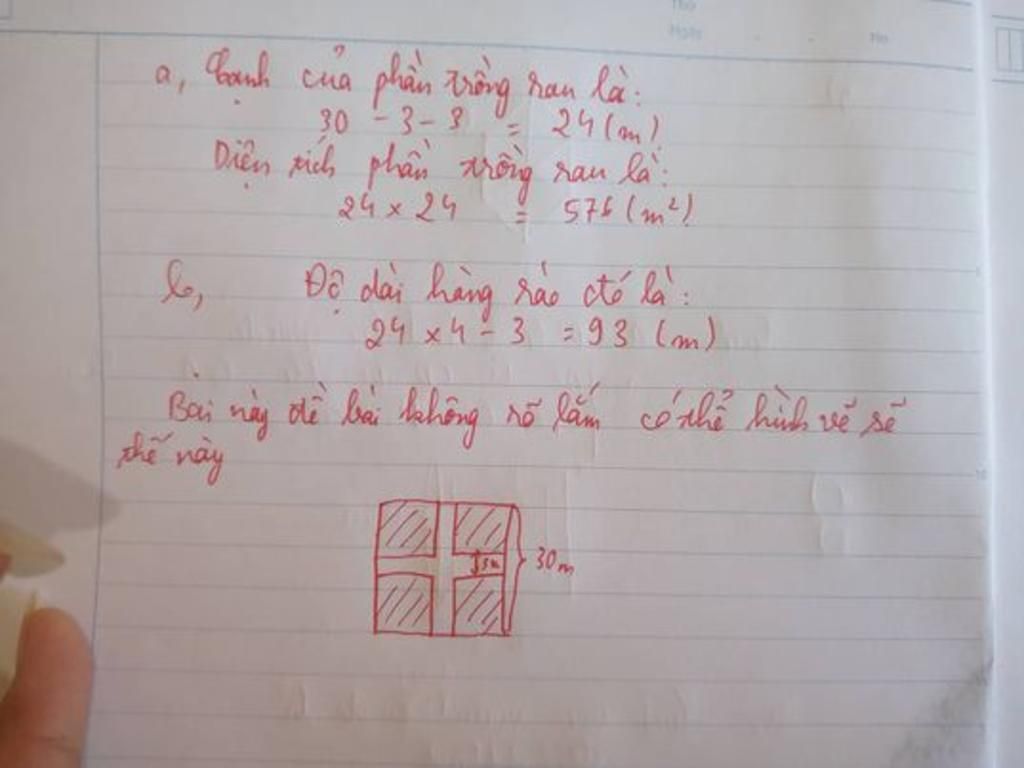 Thứ
Ngày
No
a, Cạnh của phần trồng rau là:
30 - 3 - 3 = 24 (m)
Diện tích phần trồng rau là:
24 x 24 = 576 (m²)
b, Độ dài hàng rào đó là:
24 x 4 - 3 = 93 (m)
Bài này đề bài không rõ lắm có thể hình vẽ sẽ
thế này
3m
30m